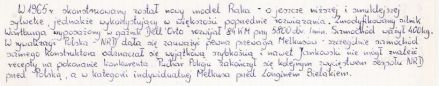 W 1965 r. skonstruowany został nowy model Raka - o jeszcze niższej i smuklejszej
sylwetce, jednakże wykorzystujący w większości poprzednie rozwiązania. Zmodyfikowany silnik
Wartburga wyposażony w gaźnik Dell'Orto rozwijał 84 KM przy 5800 obr./min. Samochód ważył 400kg.
W rywalizacji Polska - NRD dała się zauważyć pewna przewaga Melkusów - szczególnie samochód
samego konstruktora odznaczał się wyjątkową szybkością i nawet Jankowski nie mógł znaleźć
recepty na pokonanie konkurenta. Puchar Pokoju zakończył się kolejnym zwycięstwem zespołu NRD
przed Polską, a w kategorii indywidualnej Melkusa przed Longinem Bielakiem.